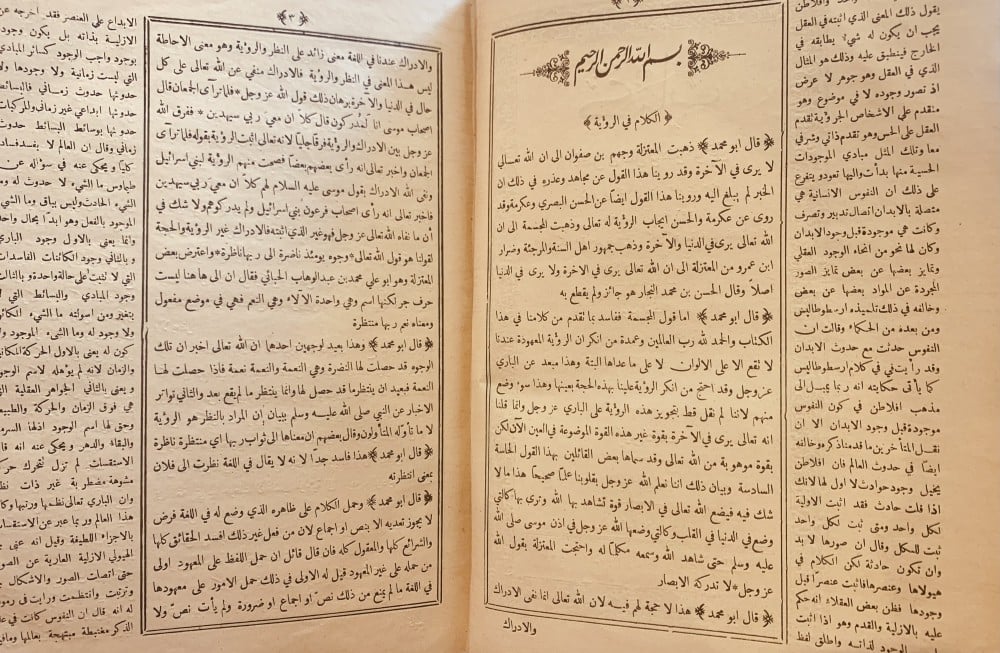 بسم الله الرحمن الرحيم
﴿ الكلام في الرؤية ﴾
﴿ قال ابو محمد ﴾ ذهبت المعتزلة وجهم بن صفوان الى ان الله تعالى
لا يرى في الآخرة وقد روينا هذا القول عن مجاهد وعذره في ذلك ان
الخبر لم يبلغ اليه وروينا هذا القول ايضاً عن الحسن البصري وعكرمة وقد
روى عن عكرمة والحسن ايجاب الرؤية له تعالى وذهبت المجسمة الى ان
الله تعالى يرى في الدنيا والآخرة وذهب جمهور اهل السنة والمرجئة وضرار
ابن عمرو من المعتزلة الى ان الله تعالى يرى في الاخرة ولا يرى في الدنيا
اصلاً وقال الحسن بن محمد النجار هو جائز ولم يقطع به
﴿ قال ابو محمد ﴾ اما قول المجسمة ففاسد بما تقدم من كلامنا في هذا
الكتاب والحمد لله رب العالمين وعمدة من انكر ان الرؤية المعهودة عندنا
لا تقع الا على الالوان لا على ما عداها البتة وهذا مبعد عن الباري
عز وجل وقد احتج من انكر الرؤية علينا بهذه الحجة بعينها وهذا سوء وضع
منهم لاننا لم نقل قط بتجويز هذه الرؤية على الباري عز وجل وانما قلنا
انه تعالى يرى في الآخرة بقوة غير هذه القوة الموضوعة في العين الآن لكن
بقوة موهوبة من الله تعالى وقد سماها بعض القائلين بهذا القول الحاسة
السادسة وبيان ذلك اننا نعلم الله عز وجل بقلوبنا علماً صحيحاً هذا ما لا
شك فيه فيضع الله تعالى في الابصار قوة تشاهد بها الله وترى بها كالتي
وضع في الدنيا في القلب وكالتي وضعها الله عز وجل في اذن موسى صلى الله
عليه وسلم حتى شاهد الله وسمعه مكلماً له واحتجت المعتزلة بقول الله
عز وجل * لا تدركه الابصار
﴿ قال ابو محمد ﴾ هذا لا حجة لهم فيه لان الله تعالى انما نفى الادراك
والادراك
يقول ذلك المعنى الذي اثبته في العقل
يجب ان يكون له شيء يطابقه في
الخارج فينطبق عليه وذلك هو المثال
الذي في العقل وهو جوهر لا عرض
اذ تصور وجوده لا في موضوع وهو
متقدم على الاشخاص الجزئية تقدم
العقل على الحس وهو تقدم ذاتي وشرفي
معا وتلك المثل مبادي الموجودات
الحسية منها بدأت واليها تعود ويتفرع
على ذلك ان النفوس الانسانية هي
متصلة بالابدان اتصال تدبير وتصرف
وكانت هي موجودة قبل وجود الابدان
وكان لها نحو من انحاء الوجود العقلي
وتمايز بعضها عن بعض تمايز الصور
المجردة عن المواد بعضها عن بعض
وخالفه في ذلك تلميذه ارسطوطاليس
ومن بعده من الحكماء وقالت ان
النفوس حدثت مع حدوث الابدان
وقد رأيت في في كلام ارسطوطاليس
كما يأتي حكايته انه ربما يميل الى
مذهب افلاطن في كون النفوس
موجودة قبل وجود الابدان الا ان
نقل المتأخرين ما قدمنا ذكره وخالفه
ايضا في حدوث العالم فان افلاطن
يحيل وجود حوادث لا اول لها لانك
اذا قلت حادث فقد اثبت الاولية
لكل واحد ومتى ثبت لكل واحد
ثبت للكل وقال ان صورها لا بد
وان تكون حادثة لكن الكلام في
هيولاها وعنصرها فاثبت عنصراً قبل
وجودها فظن بعض العقلاء انه حكم
عليه بالازلية والقدم وهو اذا اثبت
الوجود لذاته واطلق لفظ
﴿ ٣ ﴾
والادراك عندنا في اللغة معنى زائد على النظر والرؤية وهو معنى الاحاطة
ليس هذا المعنى في النظر والرؤية فالادراك منفي عن الله تعالى على كل
حال في الدنيا والآخرة برهان ذلك قول الله عز وجل * فلما ترآى الجمعان قال
اصحاب موسى انا لمدركون قال كلا ان معي ربي سيهدين * ففرق الله
عز وجل بين الادراك والرؤية فرقا جليا لانه تعالى اثبت الرؤية بقوله فلما ترآى
الجمعان واخبر تعالى انه رأى بعضهم بعضا فصحت منهم الرؤية لبني اسرائيل
ونفى الله الادراك بقول موسى عليه السلام لهم كلا ان معي ربي سيهدين
فاخبر تعالى انه رأى اصحاب فرعون بني اسرائيل ولم يدركوهم ولا شك في
أن ما نفاه الله تعالى عز وجل فهو غير الذي اثبته فالادراك غير الرؤية والحجة
لقولنا هو قول الله تعالى * وجوه يومئذ ناضرة الى ربها ناظرة * واعترض بعض
المعتزلة وهو ابو علي محمد بن عبد الوهاب الجبائي فقال ان الى هاهنا ليست
حرف جر لكنها اسم وهي واحدة الآلاء وهي النعم فهي في موضع مفعول
ومعناه نعم ربها منتظرة
﴿ قال ابو محمد ﴾ وهذا بعيد لوجهين احدهما ان الله تعالى اخبر ان تلك
الوجوه قد حصلت لها النضرة وهي النعمة والنعمة نعمة فاذا حصلت لها
النعمة فبعيد ان ينتظرما قد حصل لها وانما ينتظر ما لم يقع بعد والثاني تواتر
الاخبار عن النبي صلى الله عليه وسلم ببيان ان المراد بالنظر هو الرؤية
لا ما تأوله المتأولون وقال بعضهم ان معناها الى ثواب ربها اي منتظرة ناظرة
﴿ قال ابو محمد ﴾ هذا فاسد جداً لا نه لا يقال في اللغة نظرت الى فلان
بمعنى انتظرته
﴿ قال ابو محمد ﴾ وحمل الكلام على ظاهره الذي وضع له في اللغة فرض
لا يجوز تعديه الا بنص او اجماع لان من فعل غير ذلك افسد الحقائق كلها
والشرائع كلها والمعقول كله فان قال قائل ان حمل اللفظ على المعهود اولى
من حمله على غير المعهود قيل له الاولى في ذلك حمل الامور على معهودها
في اللغة ما لم يمنع من ذلك نص او اجماع او ضرورة ولم يأت نص ولا
الابداع على العنصر فقد اخرجه عن
الازلية بذاته بل يكون وجوده
بوجود واجب الوجود كسائر المبادي
التي ليست زمانية ولا وجودها ولا
حدوثها حدوث زماني فالبسائط
حدوثها ابداعي غير زماني والمركبات
حدوثها بوسائط البسائط حدوث
زماني وقال ان العالم لا يفسد فسادا
كليا ويحكى عنه في سؤاله عن
طيماوس ما الشيء لا حدوث له وما
الشيء الحادث وليس بباق وما الشيء
الموجود بالفعل وهو ابداً بحال واحد
وانما يعني بالاول وجود الباري
و بالثاني وجود الكائنات الفاسدات
التي لا تثبت على حالة واحدة و بالثالث
وجود المبادي والبسائط التي لا
يتغير ومن اسولته ما الشيء الكائن
ولا وجود له وما الشيء الموجود ولا
كون له يعني بالاول الحركة المكانية
والزمان لانه لم يؤهله لاسم الوجود
و يعني بالثاني الجواهر العقلية التي
هي فوق الزمان والحركة والطبيعة
وحق لها اسم الوجود اذ لها السرمد
والبقاء والدهر و يحكى عنه انه قال
الاستقسات لم تزل تتحرك حركة
مشوهة مضطربة غير ذات نظم
وان الباري تعالى نظمها ورتبها وكان
هذا العالم وربما عبر عن الاستقسات
بالاجزاء اللطيفة وقيل انه عنى بها
الهيولي الازلية العارية عن الصور
حتى اتصلت الصور والاشكال بها
وترتبت وانتظمت ورايت في رموز
له انه قال ان النفوس كانت في عالم
الذكر مغتبطة مبتهجة بعالمها وما فيه